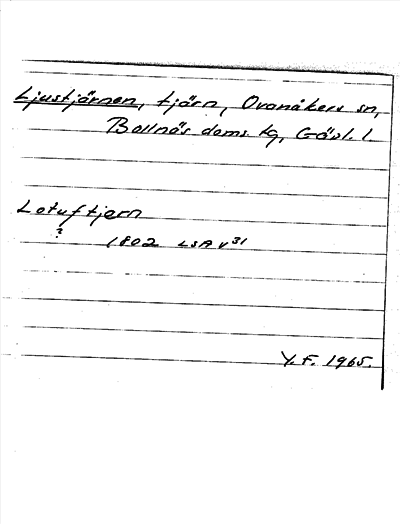 Ljustjärnen, tjärn, Ovanåkers sn,
Bollnäs doms. tg, Gävl. l.
Lotuftjern
?
1802 LSA V31
Y.F. 1965.